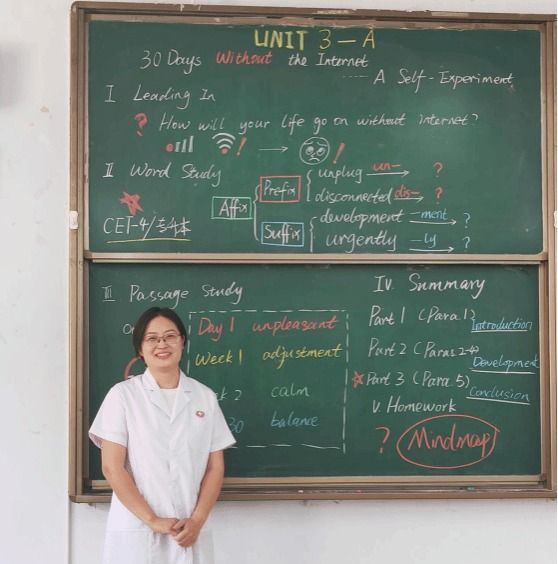 UNIT 3-A
30 Days Without the Internet
---- A Self-Experiment
I Leading In
? How will your life go on without internet?
! → !
II Word Study
CET-4/专升本
Affix
Prefix
unplug un- → ?
disconnected dis- → ?
Suffix
development -ment → ?
urgently -ly → ?
III Passage Study
Day 1 unpleasant
Week 1 adjustment
2 calm
30 balance
IV. Summary
Part 1 (Para. 1) Introduction
Part 2 (Paras 2-4) Development
Part 3 (Para. 5) Conclusion
V. Homework
? Mindmap